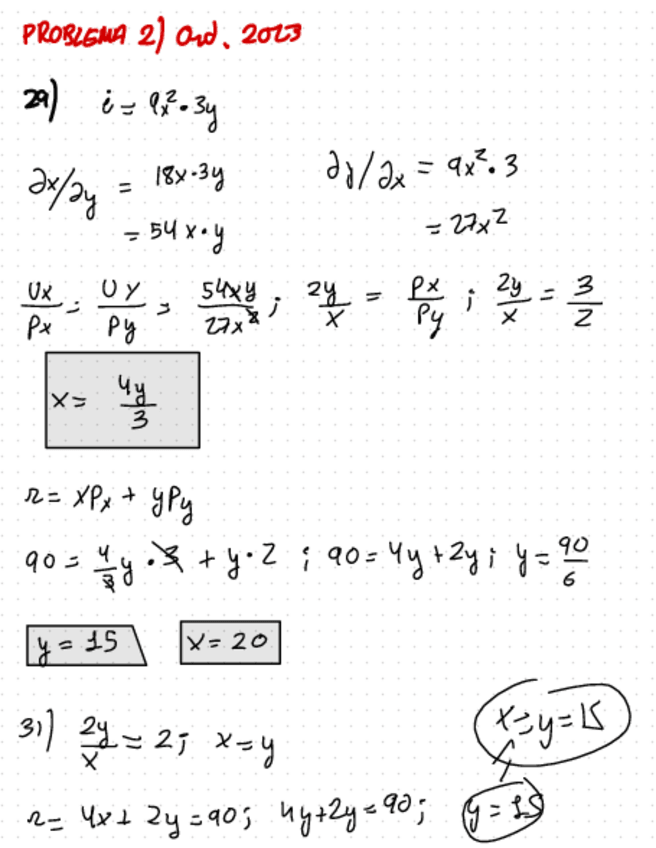 PROBLEMA 2) Ord. 2023
29) i = 9x² · 3y
∂x/∂y = 18x · 3y
= 54x · y
∂y/∂x = 9x² · 3
= 27x²
Ux/Px = Uy/Py = 54xy/27x² ; 2y/x = Px/Py ; 2y/x = 3/2
x = 4y/3
r = xPx + yPy
90 = 4/3 y · 3 + y · 2 ; 90 = 4y + 2y ; y = 90/6
y = 15
x = 20
31) 2y/x = 2 ; x = y
x = y = 15
r = 4x + 2y = 90 ; 4y + 2y = 90 ; y = 15